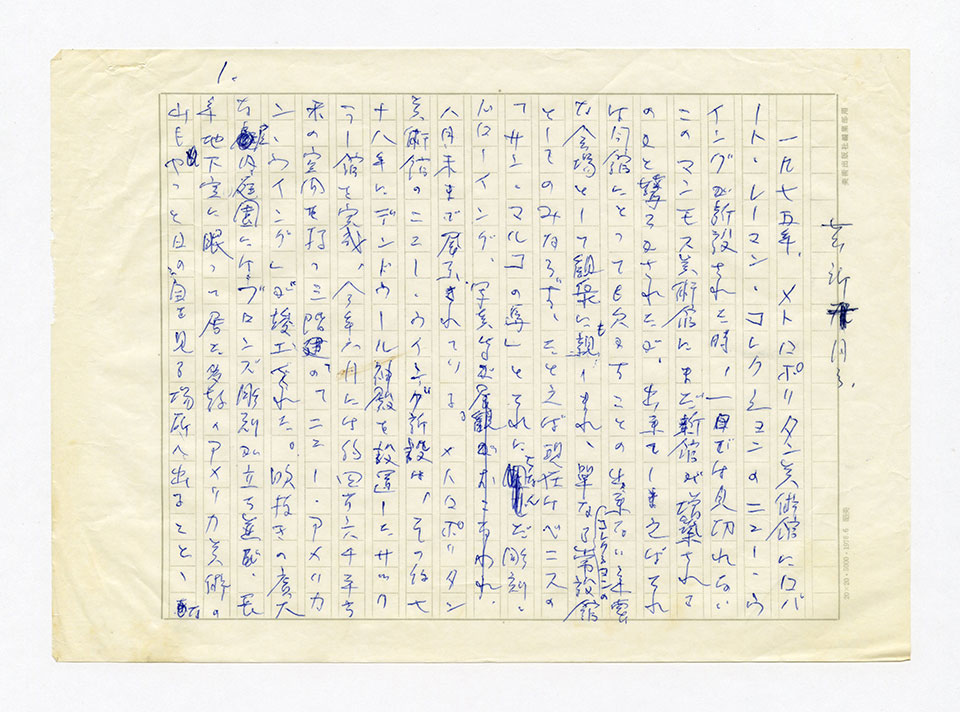 1.
一九七五年、メトロポリタン美術館にロバ
ート・レーマン・コレクションのニュー・ウ
イングが新設された時、一日では見切れない
このマンモス美術館にまだ新館が増築される
のかと驚かされたが、出来てしまえばそれ
は同館にとっても欠かすことの出来ない重要
な会場として観衆にも親しまれ、単なる常設館(コレクションの
としてのみならず、たとえば現在はベニスの
「サン・マルコの馬」とそれにちなんだ彫刻、
ドローイング、写真等が展観がおこなわれ、
八月末まで展示されている。メトロポリタン
美術館のニュー・ウイング新設は、その後七
十八年にデンドウール神殿を設置したサック
ラー館を完成、今年六月には約四百六十平方
米の空間を持つ三階建てのニュー・アメリカ
ン・ウイング」が竣工された。吹抜きの広大
な屋内庭園にはブロンズ彫刻が立ち並び、長
年地下室に眠って居た多数のアメリカ美術の
山もやっと日の目を見る場所へ出ること、
美術出版社編集部用
20×20=2000×1975.6 昭英